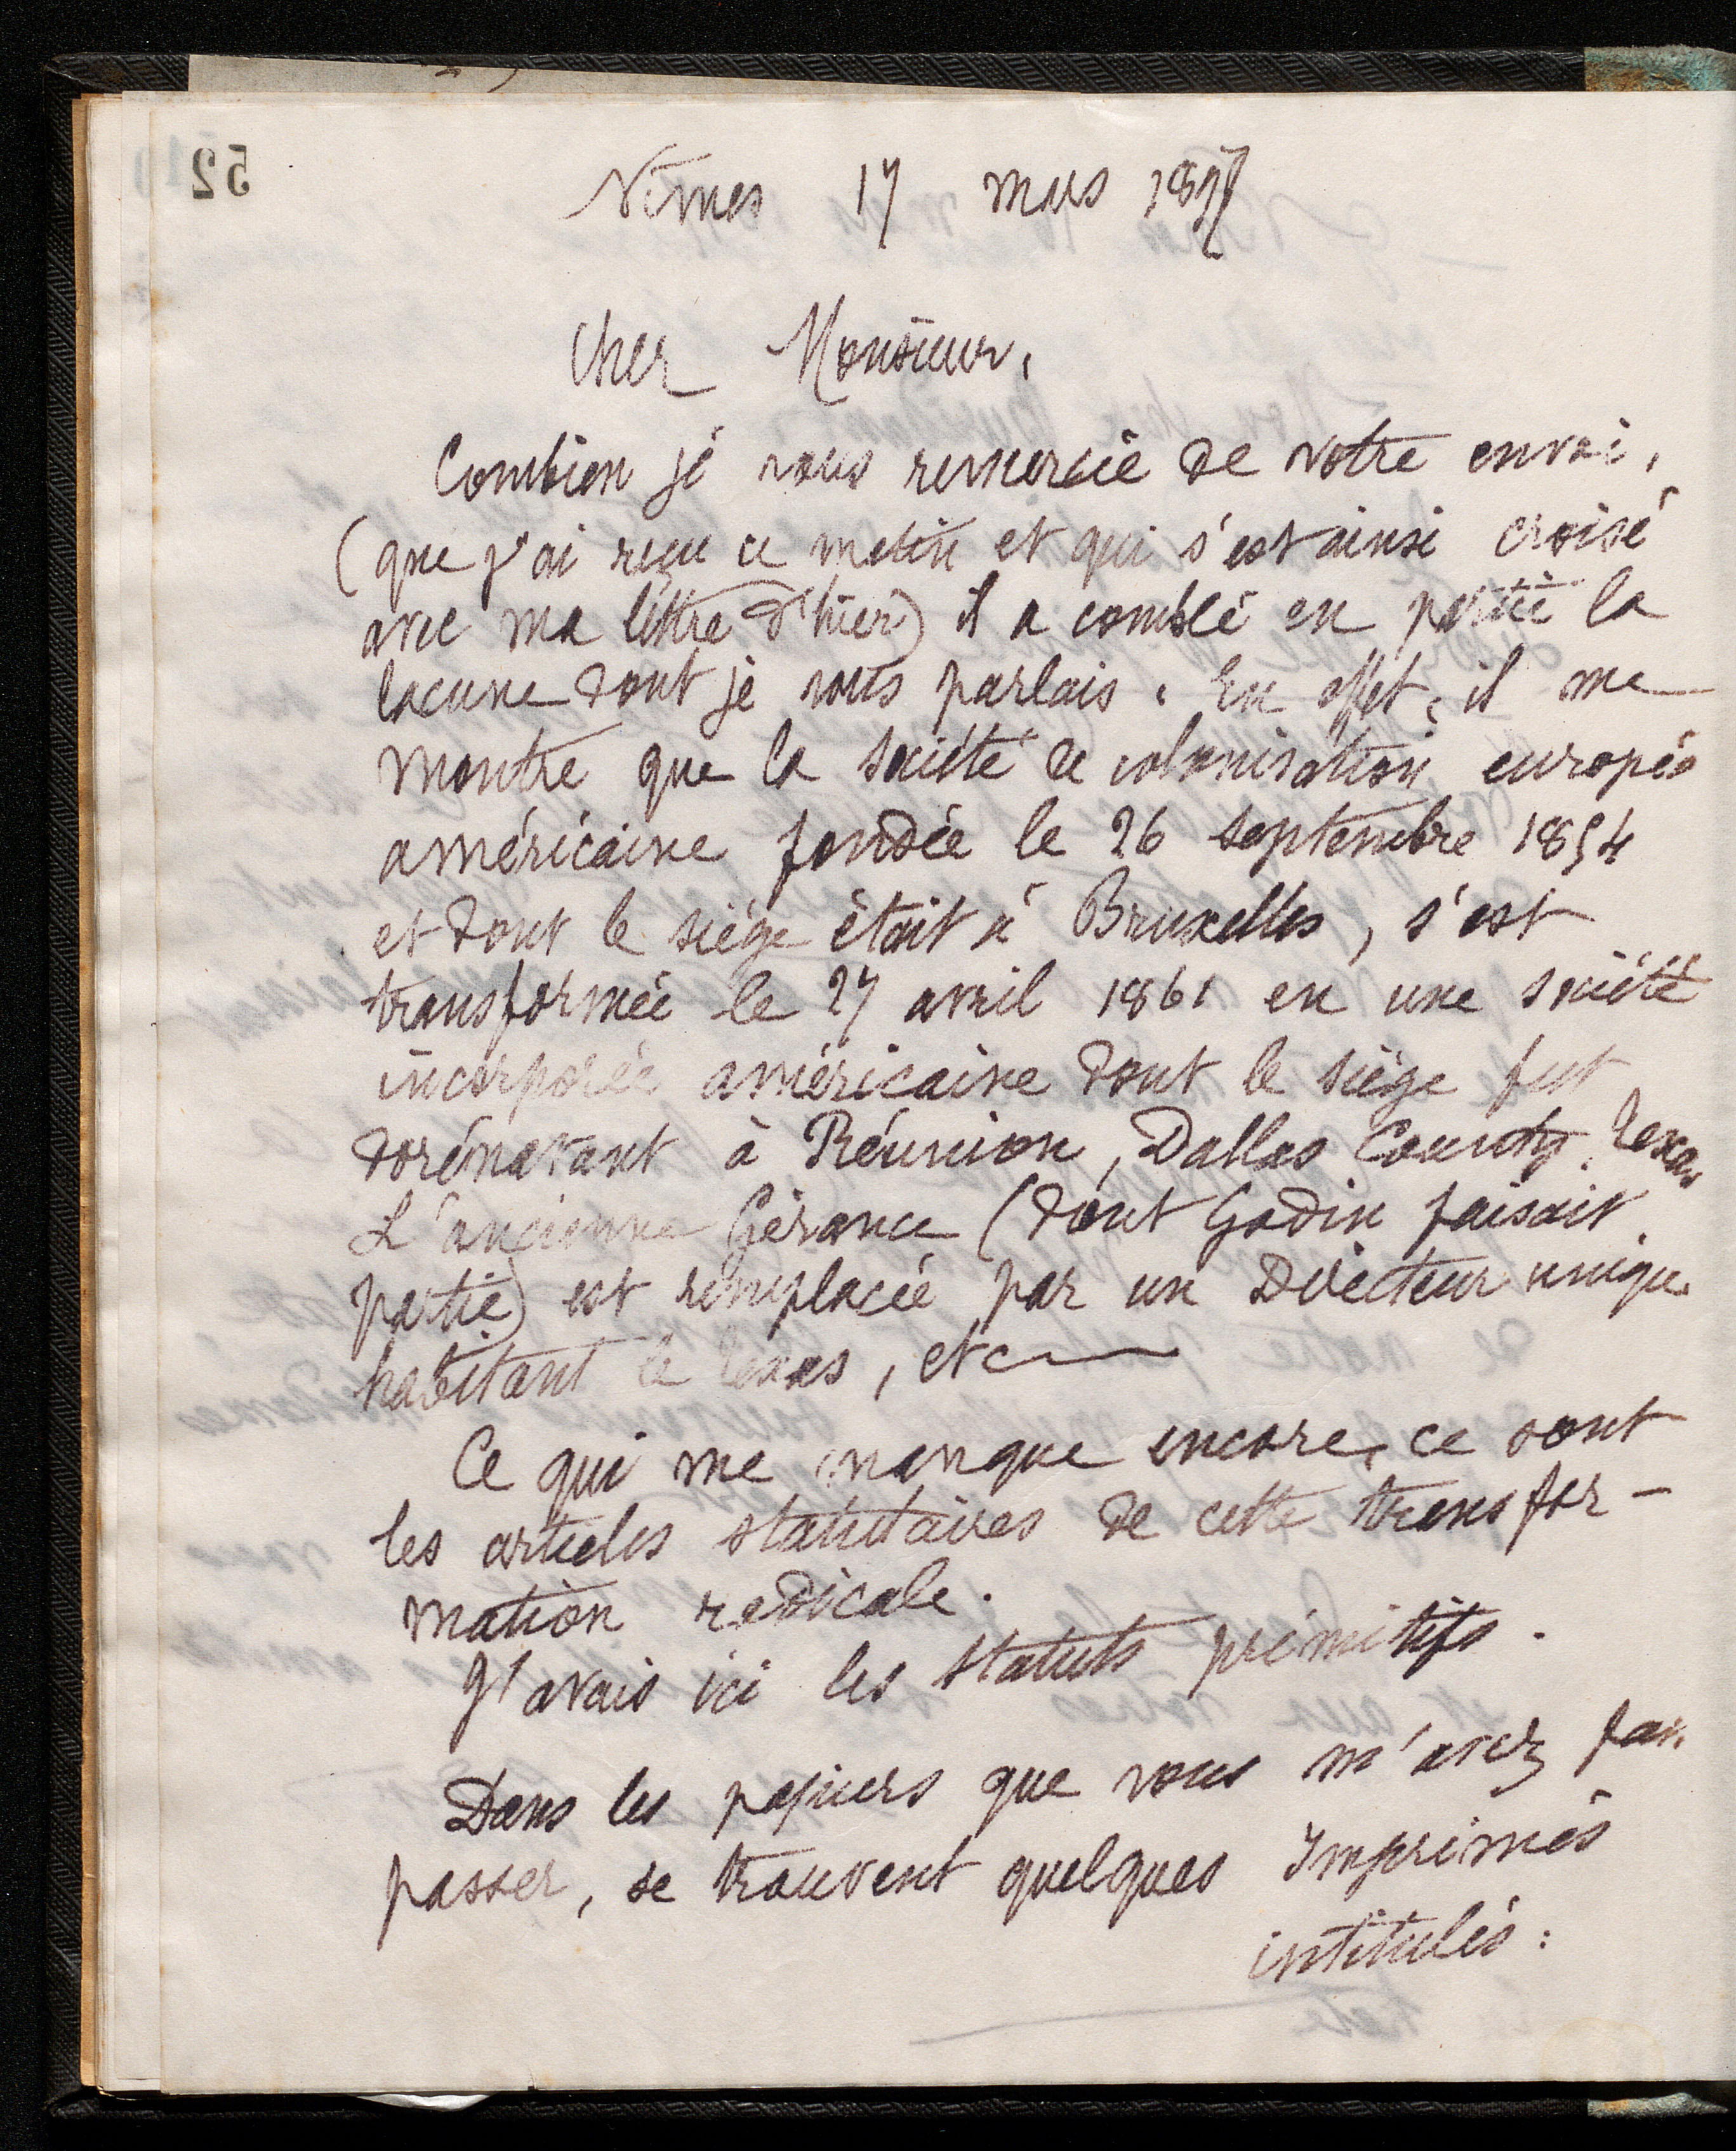 52
Nîmes 17 mars 1897
Cher Monsieur,
Combien je vous remercie de votre envoi,
(que j'ai reçu ce matin et qui s'est ainsi croisé
avec ma lettre d'hier) il a comblé en partie la
lacune dont je vous parlais. En effet, il me
montre que la Société de colonisation europeo
américaine fondée le 26 septembre 1854
et dont le siège était à Bruxelles, s'est
transformée le 27 avril 1861 en une société
incorporée américaine dont le siège fut
dorénavant à Réunion, Dallas County, Texas
L'ancienne Gérance (dont Godin faisait
partie) est remplacée par un Directeur unique
habitant le Texas, etc
Ce qui me manque encore, ce sont
les articles statutaires de cette transfor-
mation radicale.
J'avais ici les statuts primitifs.
Dans les papiers que vous m'avez fai
passer, se trouvent quelques Imprimés
intitulés: